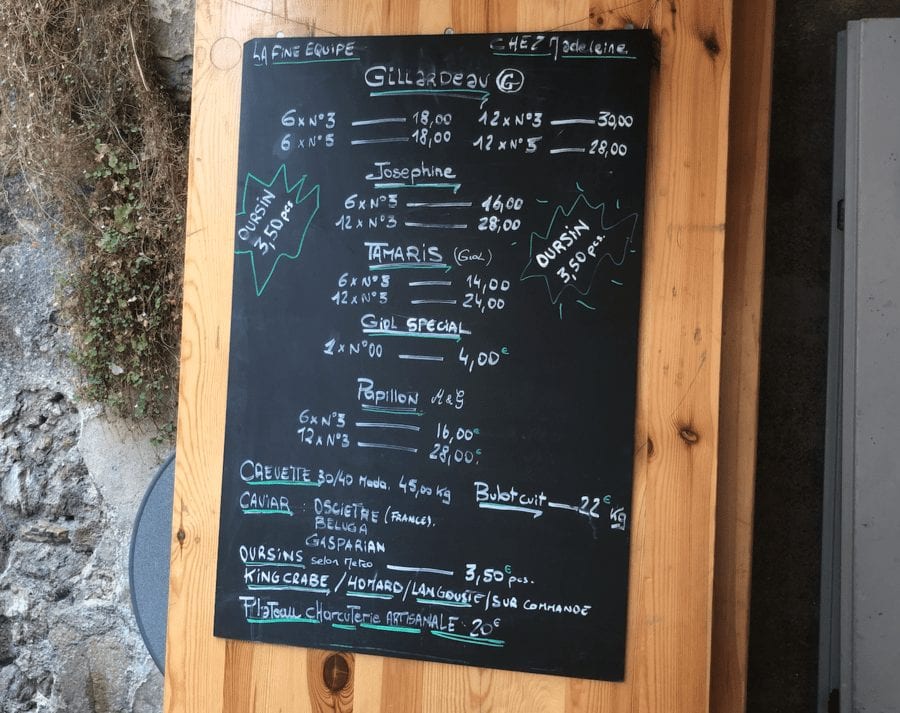 LA FINE EQUIPE
CHEZ Madeleine
GILLARDEAU G
6 x N°3 — 18,00
12 x N°3 — 30,00
6 x N°5 — 18,00
12 x N°5 — 28,00
Josephine
6 x N°3 — 16,00
12 x N°3 — 28,00
OURSIN
3,50 pcs
OURSIN
3,50 pcs.
TAMARIS (Giol)
6 x N°3 — 14,00
12 x N°3 — 24,00
Giol SPECIAL
1 x N°00 — 4,00€
Papillon
6 x N°3 — 16,00€
12 x N°3 — 28,00€
CREVETTE 30/40 Mada. 45,00 Kg
Bulot cuit — 22€ Kg
CAVIAR : OSCIETRE (FRANCE).
BELUGA
GASPARIAN
OURSINS selon Meteo — 3,50€ pcs.
KING CRABE / HOMARD / LANGOUSTE / SUR COMMANDE
Plateau CHarcuterie ARTISANALE 20€